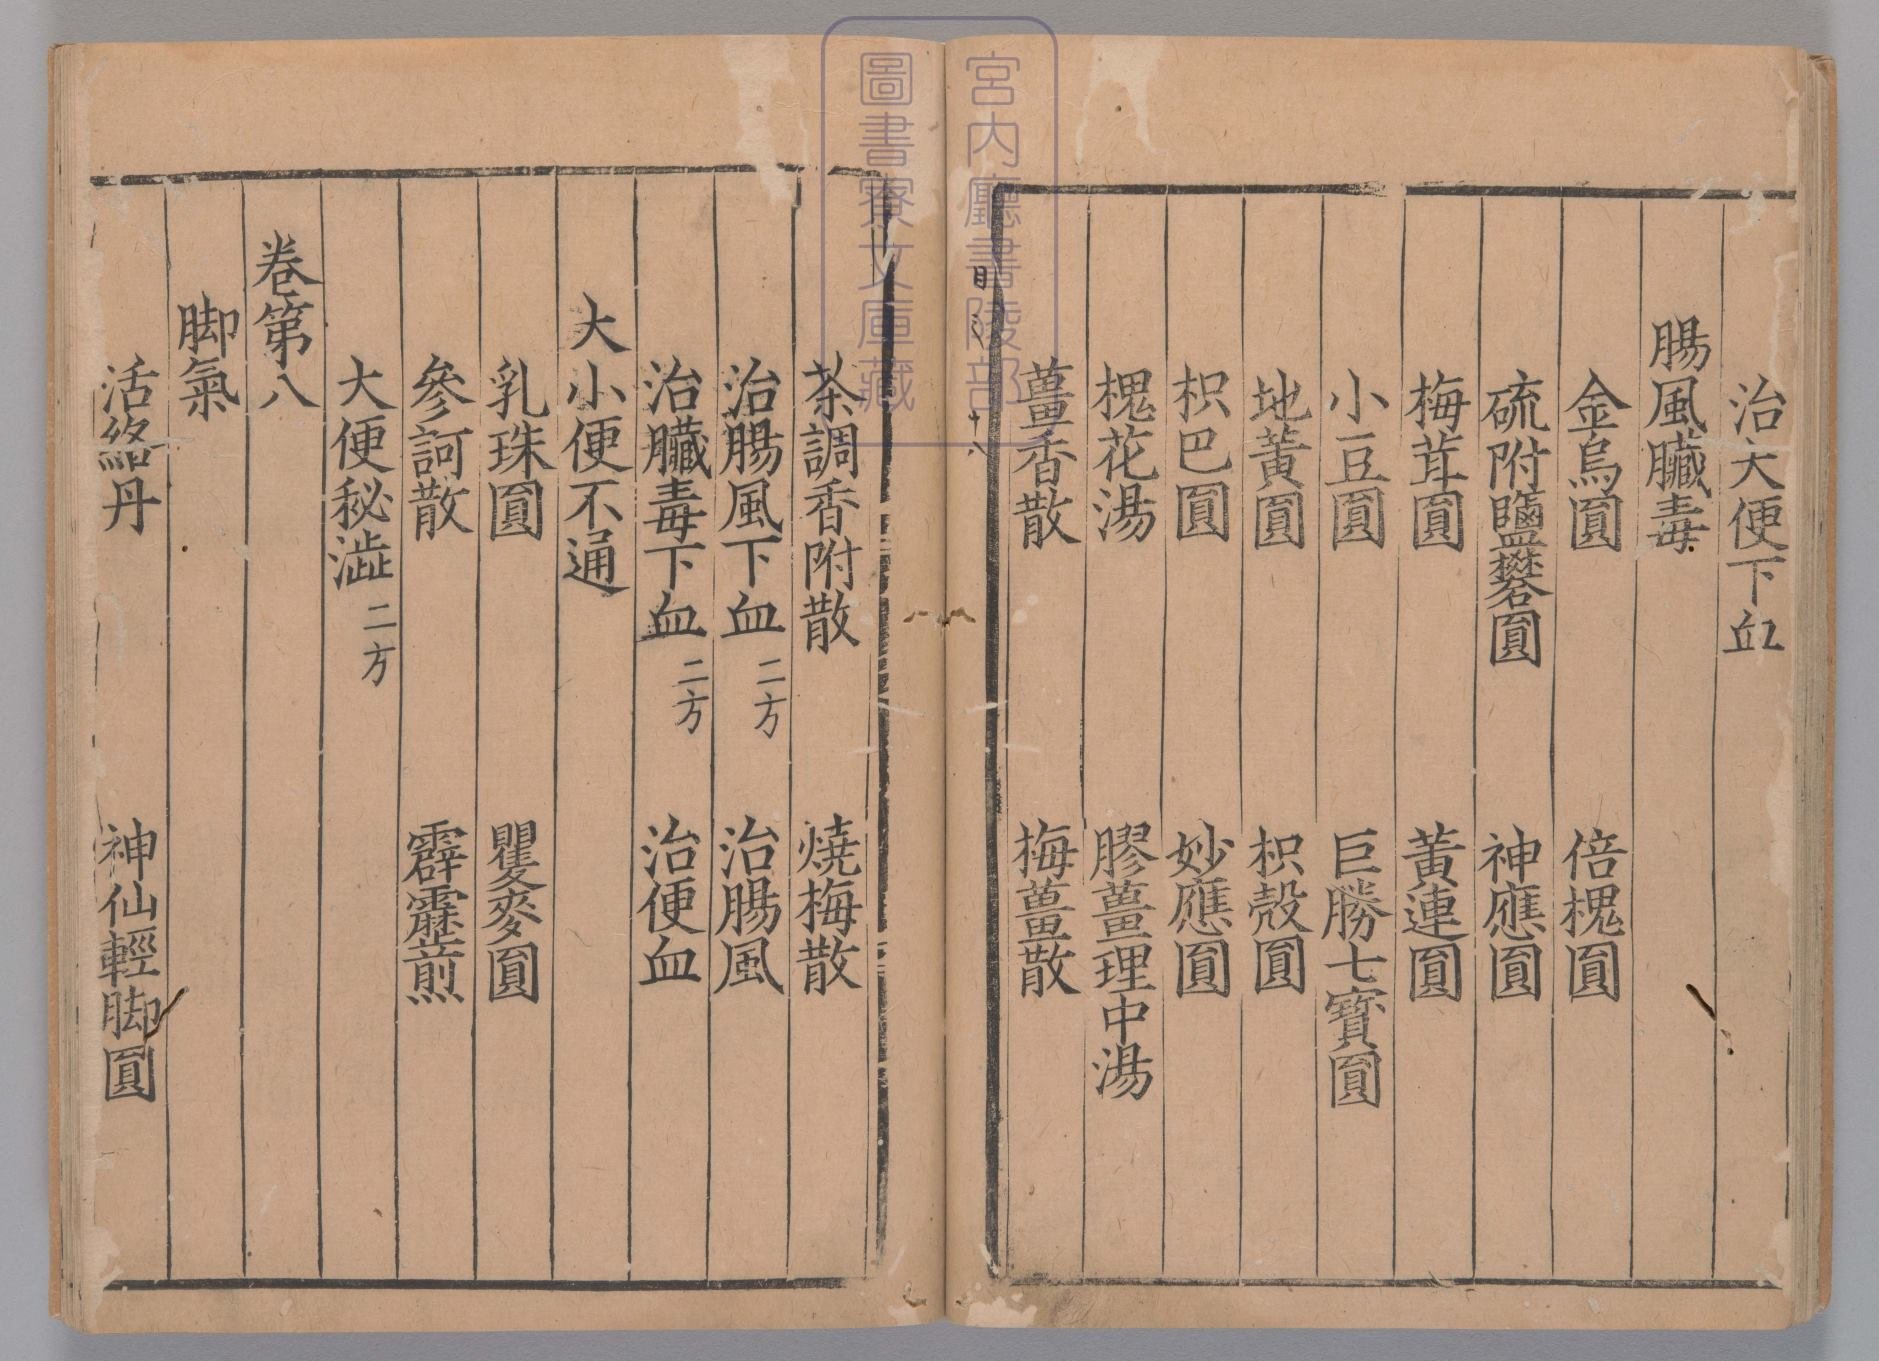 治大便下血
腸風臟毒
金烏圓 倍槐圓
硫附鹽礬圓 神應圓
梅茸圓 黃連圓
小豆圓 巨勝七寶圓
地黃圓 枳殼圓
枳巴圓 妙應圓
槐花湯 膠薑理中湯
薑香散 梅薑散
目 十八
茶調香附散 燒梅散
治腸風下血二方 治腸風
治臟毒下血二方 治便血
大小便不通
乳珠圓 瞿麥圓
參訶散 霹靂煎
大便秘澁二方
卷第八
脚氣
活絡丹 神仙輕脚圓
宮内廳書陵部
圖書寮文庫藏